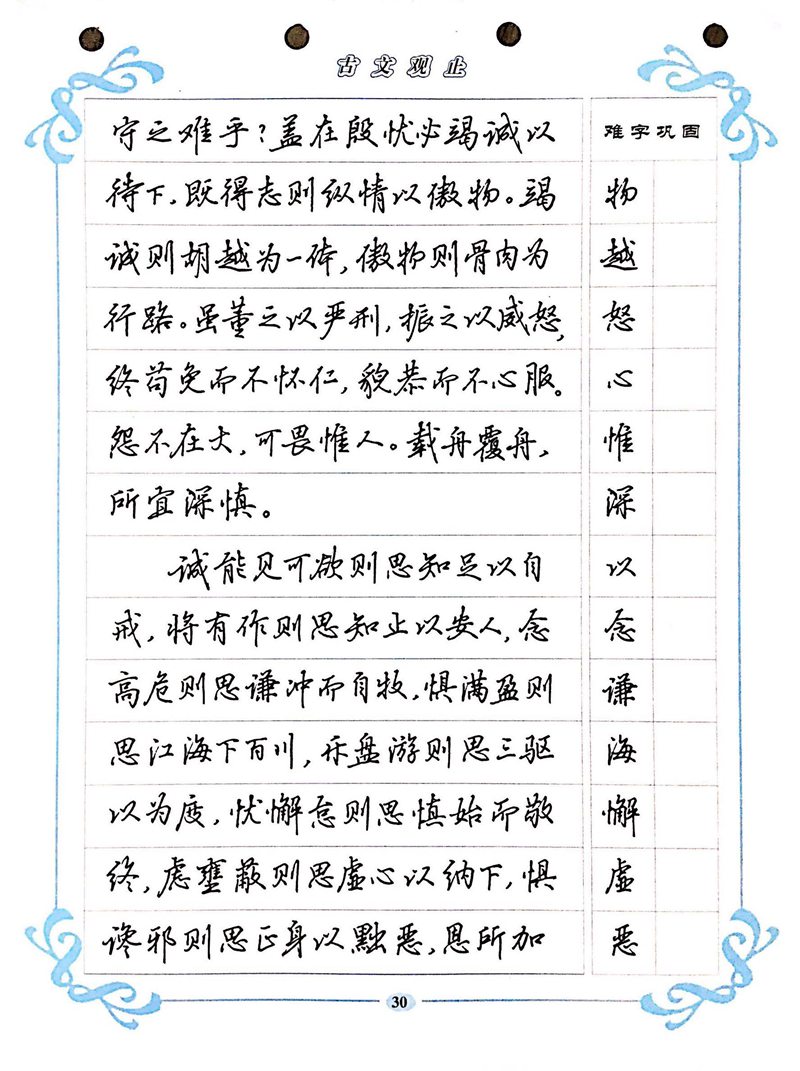 古文观止
守之难乎？盖在殷忧必竭诚以
待下，既得志则纵情以傲物。竭
诚则胡越为一体，傲物则骨肉为
行路。虽董之以严刑，振之以威怒，
终苟免而不怀仁，貌恭而不心服。
怨不在大，可畏惟人。载舟覆舟，
所宜深慎。
诚能见可欲则思知足以自
戒，将有作则思知止以安人，念
高危则思谦冲而自牧，惧满盈则
思江海下百川，乐盘游则思三驱
以为度，忧懈怠则思慎始而敬
终，虑壅蔽则思虚心以纳下，惧
谗邪则思正身以黜恶，恩所加
难字巩固
物
越
怒
心
惟
深
以
念
谦
海
懈
虚
恶
30